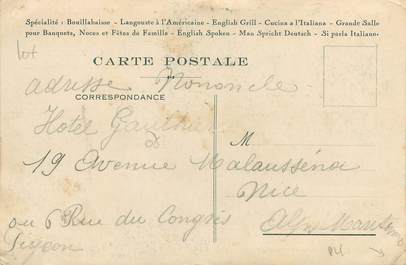 Spécialité : Bouillabaisse - Langouste à l'Américaine - English Grill - Cucina a l'Italiana - Grande Salle
pour Banquets, Noces et Fêtes de Famille - English Spoken - Man Spricht Deutsch - Si parla Italiano.
lot
CARTE POSTALE
adresse Nononcle
CORRESPONDANCE
Hotel Gauthier
M
19 Avenue Malaussena
Nice
ou 6 Rue du Congrès
Alpes Maritimes